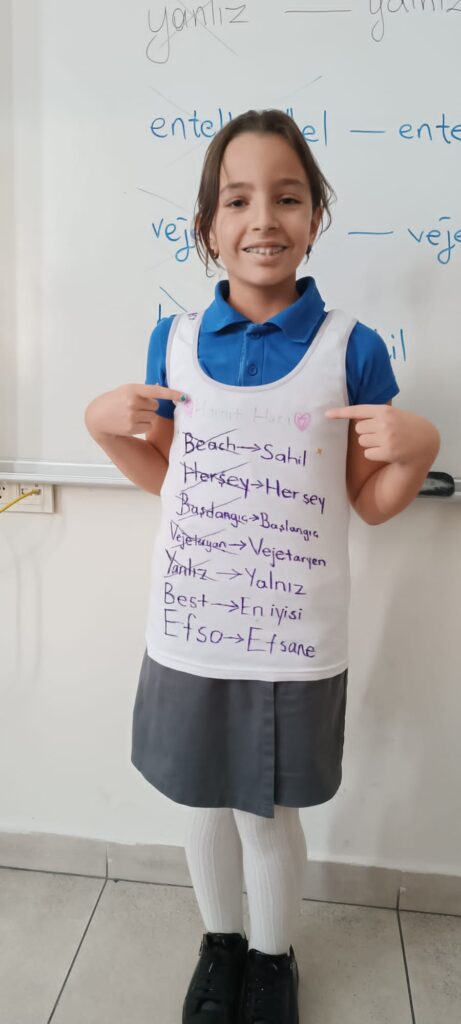 yanlız — yalnız
entel — ente
veje — veje
il
Beach → Sahil
Herşey → Her şey
Başdangıç → Başlangıç
Vejeteryan → Vejetaryen
Yanlız → Yalnız
Best → En iyisi
Efso → Efsane